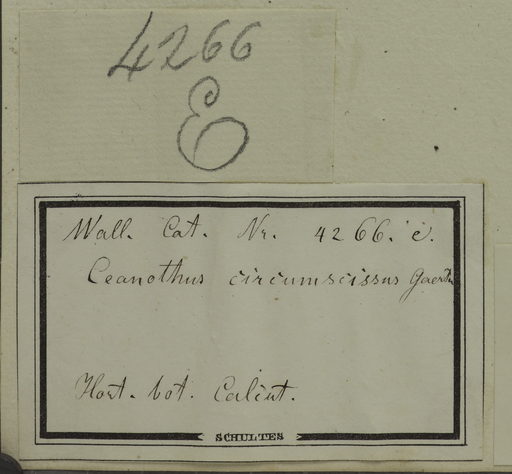 4266
E
Wall. Cat. Nr. 4266. e.
Ceanothus circumscissus Gaertn
Hort. bot. Calcut.
SCHULTES